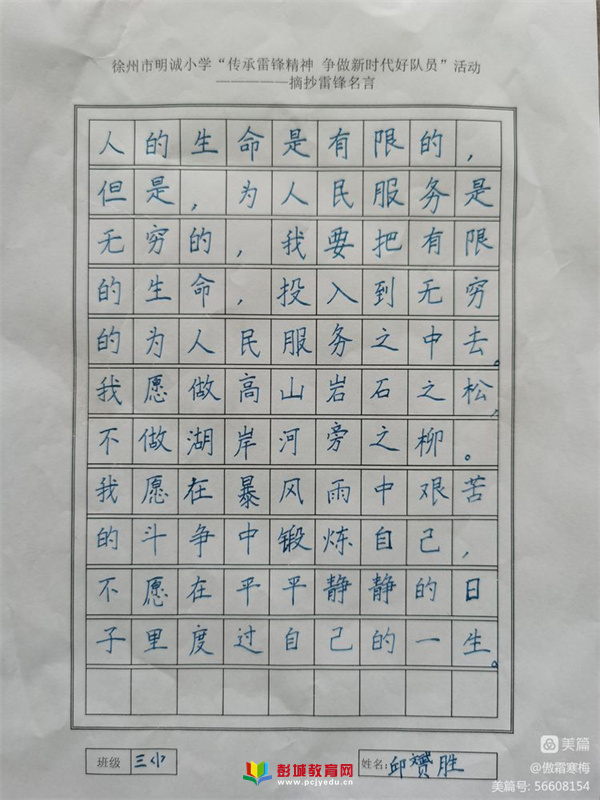 徐州市明诚小学“传承雷锋精神 争做新时代好队员”活动
——————摘抄雷锋名言
人的生命是有限的，
但是，为人民服务是
无穷的，我要把有限
的生命，投入到无穷
的为人民服务之中去。
我愿做高山岩石之松，
不做湖岸河旁之柳。
我愿在暴风雨中艰苦
的斗争中锻炼自己，
不愿在平平静静的日
子里度过自己的一生。
班级 三小
姓名：邱赟胜
彭城教育网
www.pcjyedu.cn
美篇
@傲霜寒梅
美篇号: 56608154